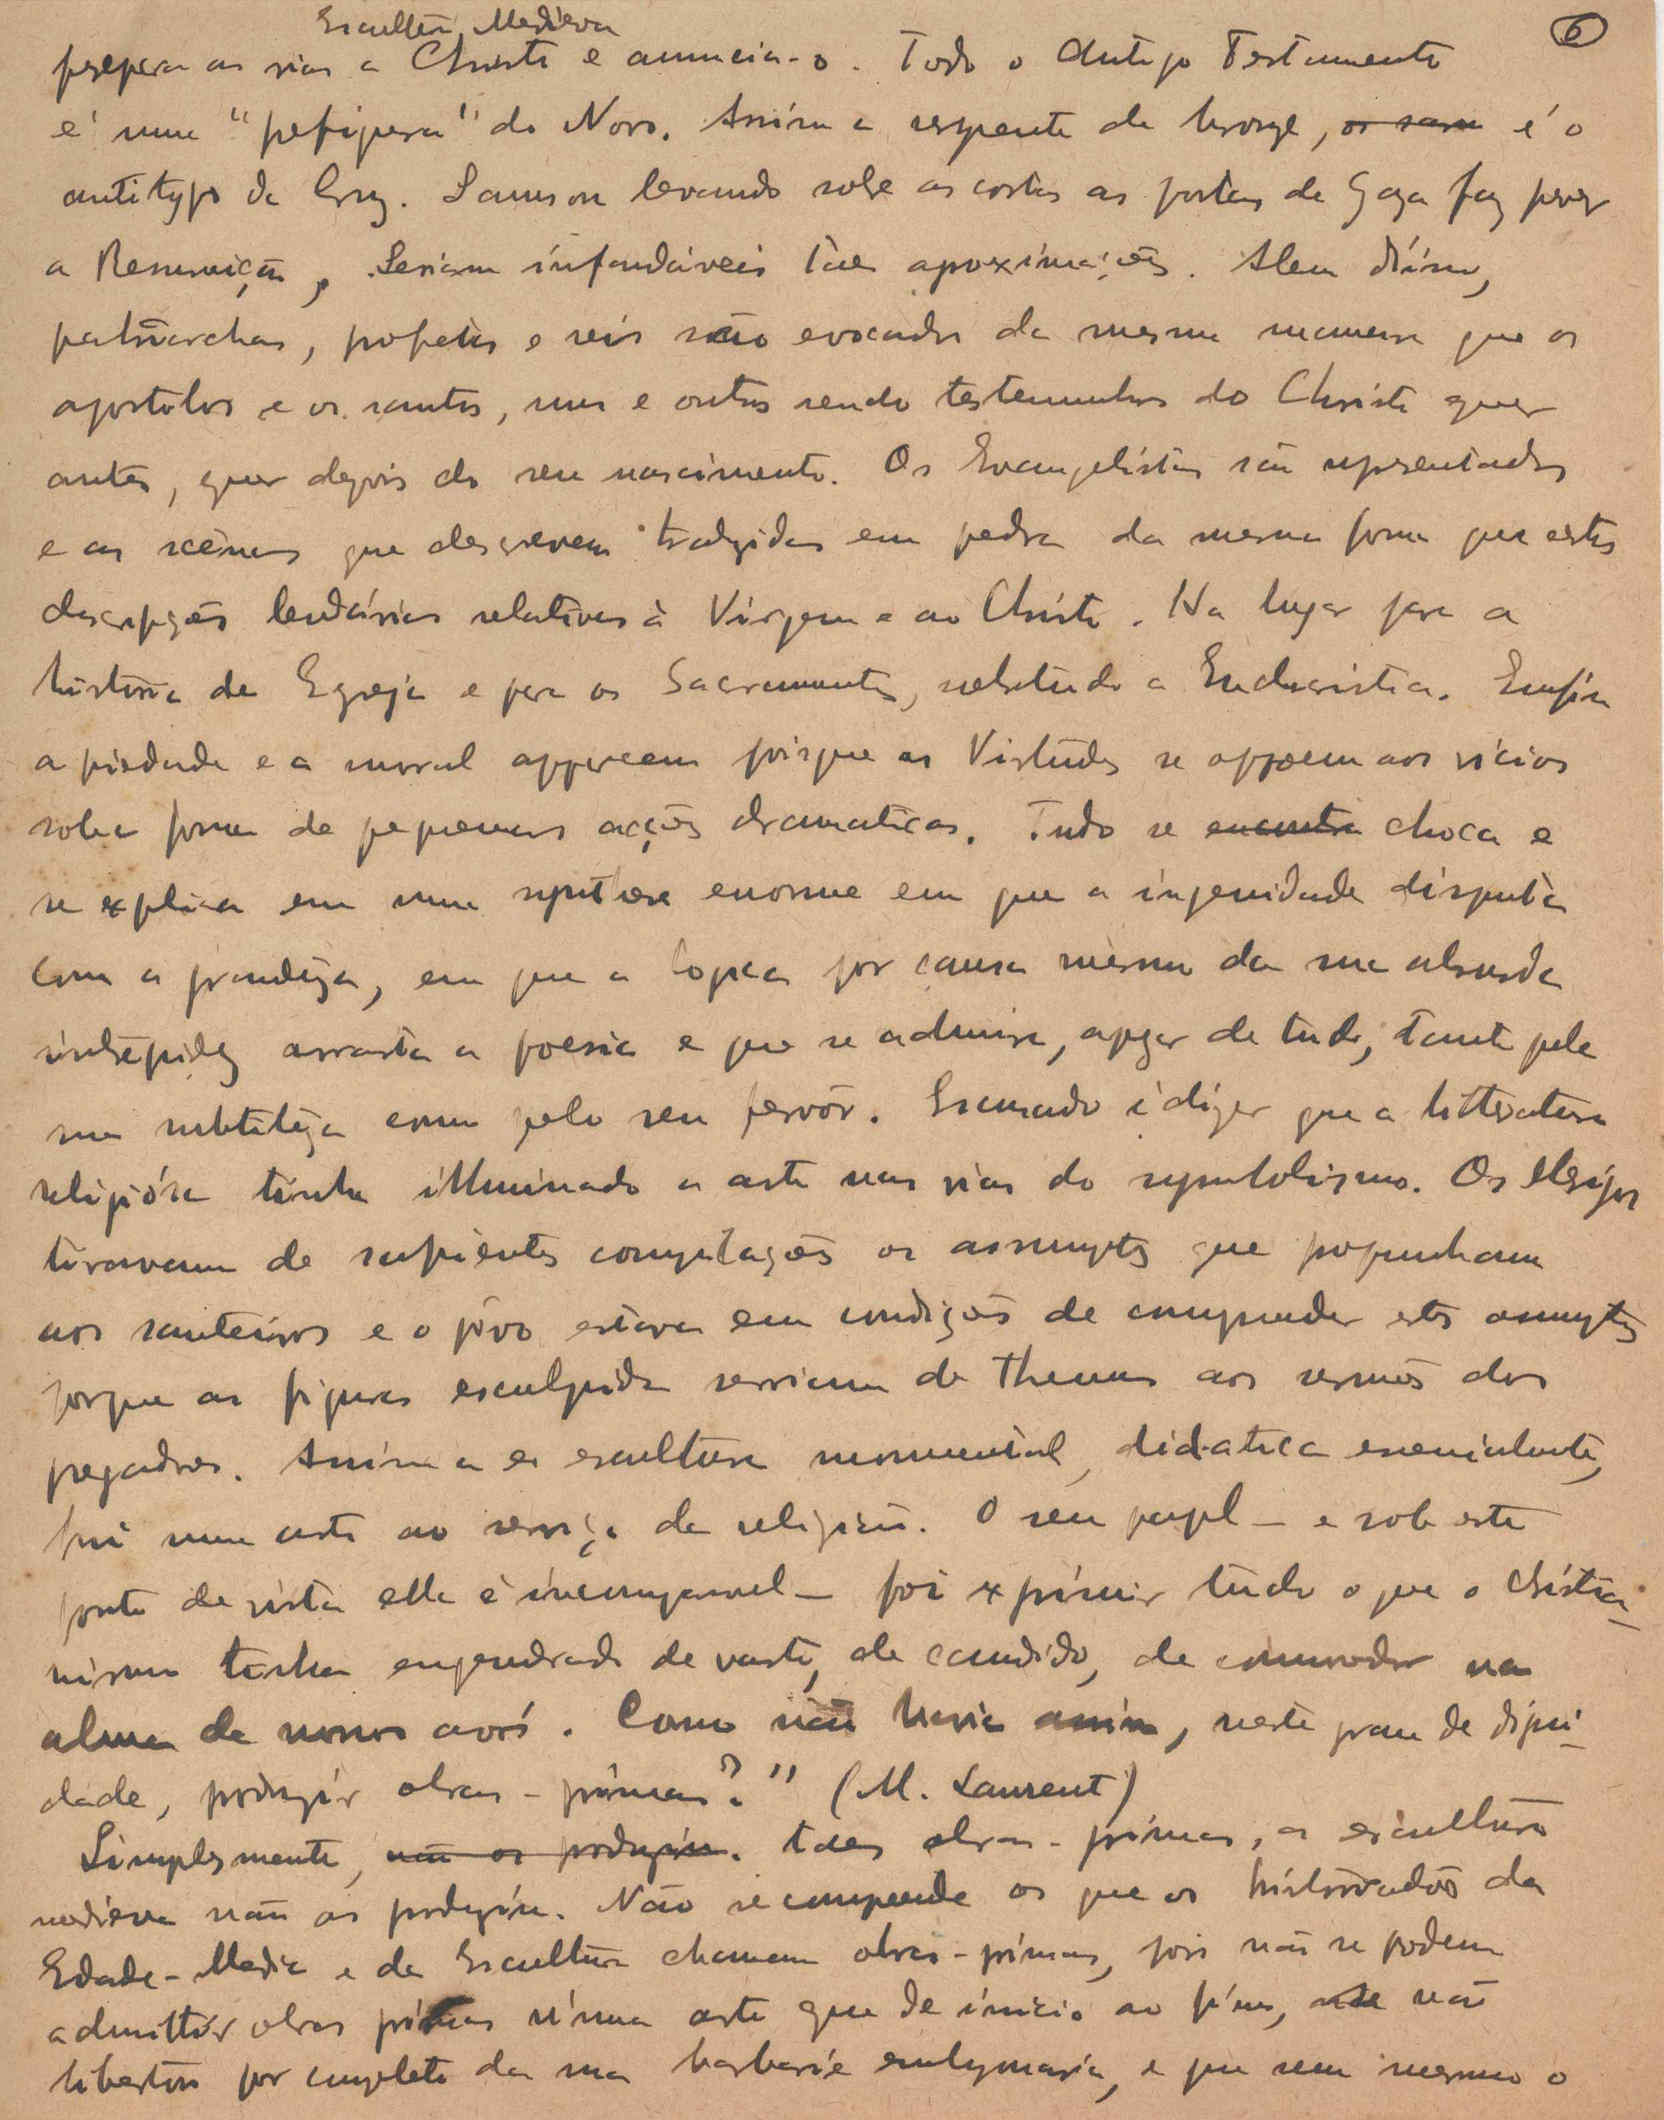 Escultura Medieva
6
prepara as vias a Christo e annuncia-o. Todo o Antigo Testamento
é uma "prefigura" do Novo. Assim a serpente de bronze, é o
antitypo da Cruz. Samson levando sobre as costas as portas de Gaza faz prever
a Resurreição, Seriam infindáveis táes aproximações. Alem disso,
patriarchas, profetas e reis são evocados da mesma maneira que os
apostolos e os santos, uns e outros sendo testemunhos do Christo quer
antes, quer depois do seu nascimento. Os Evangelistas são representados
e as scénas que descrevem traduzidas em pedra da mesma forma que estas
descripções lendárias relativas à Virgem e ao Christo. Ha lugar para a
história da Egreja e para os Sacramentos, sobretudo a Eucharistia. Emfim
a piedade e a moral apparecem porque as Virtudes se oppoem aos vicios
sob a forma de pequenas acções dramaticas. Tudo se encontra choca e
se explica em uma synthese enorme em que a ingenuidade disputa
com a grandeza, em que a logica por causa mesmo da sua absurda
intrepidez arrasta a poesia e que se admira, apezar de tudo, tanto pela
sua subtileza como pelo seu fervôr. Escusado é dizer que a litteratura
religiósa tinha illuminado a arte nas vias do symbolismo. Os clerigos
tiravam de sapientes compilações os assumptos que propunham
aos santeiros e o povo estava em condições de comprender estes assumptos
porque as figuras esculpidas serviam de themas aos sermões dos
pregadores. Assim a escultura monumental, didatica essencialmente,
foi uma arte ao serviço da religião. O seu papel – e sob este
ponto de vista ella é incomparavel – foi exprimir tudo o que o Christia-
nismo tinha engendrado de vasto, de candido, de commovedor na
alma de nossos avós. Como não havia assim, neste grau de digni-
dade, produzir obras-primas?" (M. Laurent)
Simplesmente, não as produziu. taes obras-primas, a escultura
medieva não as produziu. Não se comprende os que os historiadores da
Edade-Media e da Escultura chamam obras-primas, pois não se podem
admittir obras primas n'uma arte que de inicio ao fim, não
libertou por completo da sua barbarie embryonaria, e que nem mesmo o